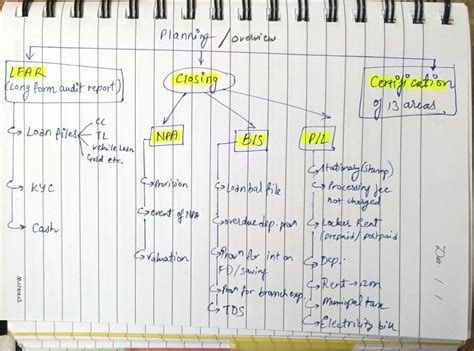 Planning / overview
LFAR
(Long form audit report)
Closing
Certification
of 13 areas.
Loan files
CC
TL
vehicle Loan
Gold etc.
KYC
Cash
NPA
Provision
event of NPA
Valuation
B/S
Loan bal file
overdue dep. prov
Provn for int on
FD/saving
Prov for branch exp.
TDS
P/L
Stationary (stamp)
Processing fee
not charged
Locker Rent
(prepaid/postpaid
Dep:
Rent → 12m
Municipal tax
Electricity bill